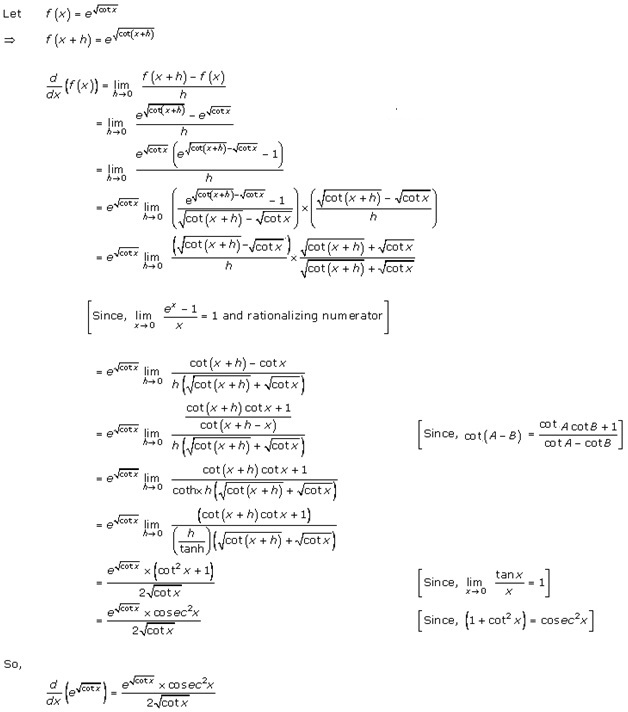 Let f(x) = e^√(cot x)
⇒ f(x+h) = e^√(cot(x+h))
d/dx (f(x)) = lim_{h→0} (f(x+h) − f(x))/h
= lim_{h→0} (e^√(cot(x+h)) − e^√(cot x))/h
= lim_{h→0} e^√(cot x) (e^(√(cot(x+h)) − √(cot x)) − 1)/h
= e^√(cot x) lim_{h→0} ((e^(√(cot(x+h)) − √(cot x)) − 1)/(√(cot(x+h)) − √(cot x))) × ((√(cot(x+h)) − √(cot x))/h)
= e^√(cot x) lim_{h→0} (√(cot(x+h)) − √(cot x))/h × (√(cot(x+h)) + √(cot x))/(√(cot(x+h)) + √(cot x))
[Since, lim_{x→0} (e^x − 1)/x = 1 and rationalizing numerator]
= e^√(cot x) lim_{h→0} (cot(x+h) − cot x)/(h(√(cot(x+h)) + √(cot x)))
= e^√(cot x) lim_{h→0} ((cot(x+h) cot x + 1)/(cot(x+h−x)))/(h(√(cot(x+h)) + √(cot x))) [Since, cot(A−B) = (cot A cot B + 1)/(cot A − cot B)]
= e^√(cot x) lim_{h→0} (cot(x+h) cot x + 1)/(coth×h(√(cot(x+h)) + √(cot x)))
= e^√(cot x) lim_{h→0} (cot(x+h) cot x + 1)/((h/tanh)(√(cot(x+h)) + √(cot x)))
= (e^√(cot x) × (cot² x + 1))/(2√(cot x)) [Since, lim_{x→0} tan x/x = 1]
= (e^√(cot x) × cosec²x)/(2√(cot x)) [Since, (1 + cot² x) = cosec²x]
So,
d/dx (e^√(cot x)) = (e^√(cot x) × cosec²x)/(2√(cot x))